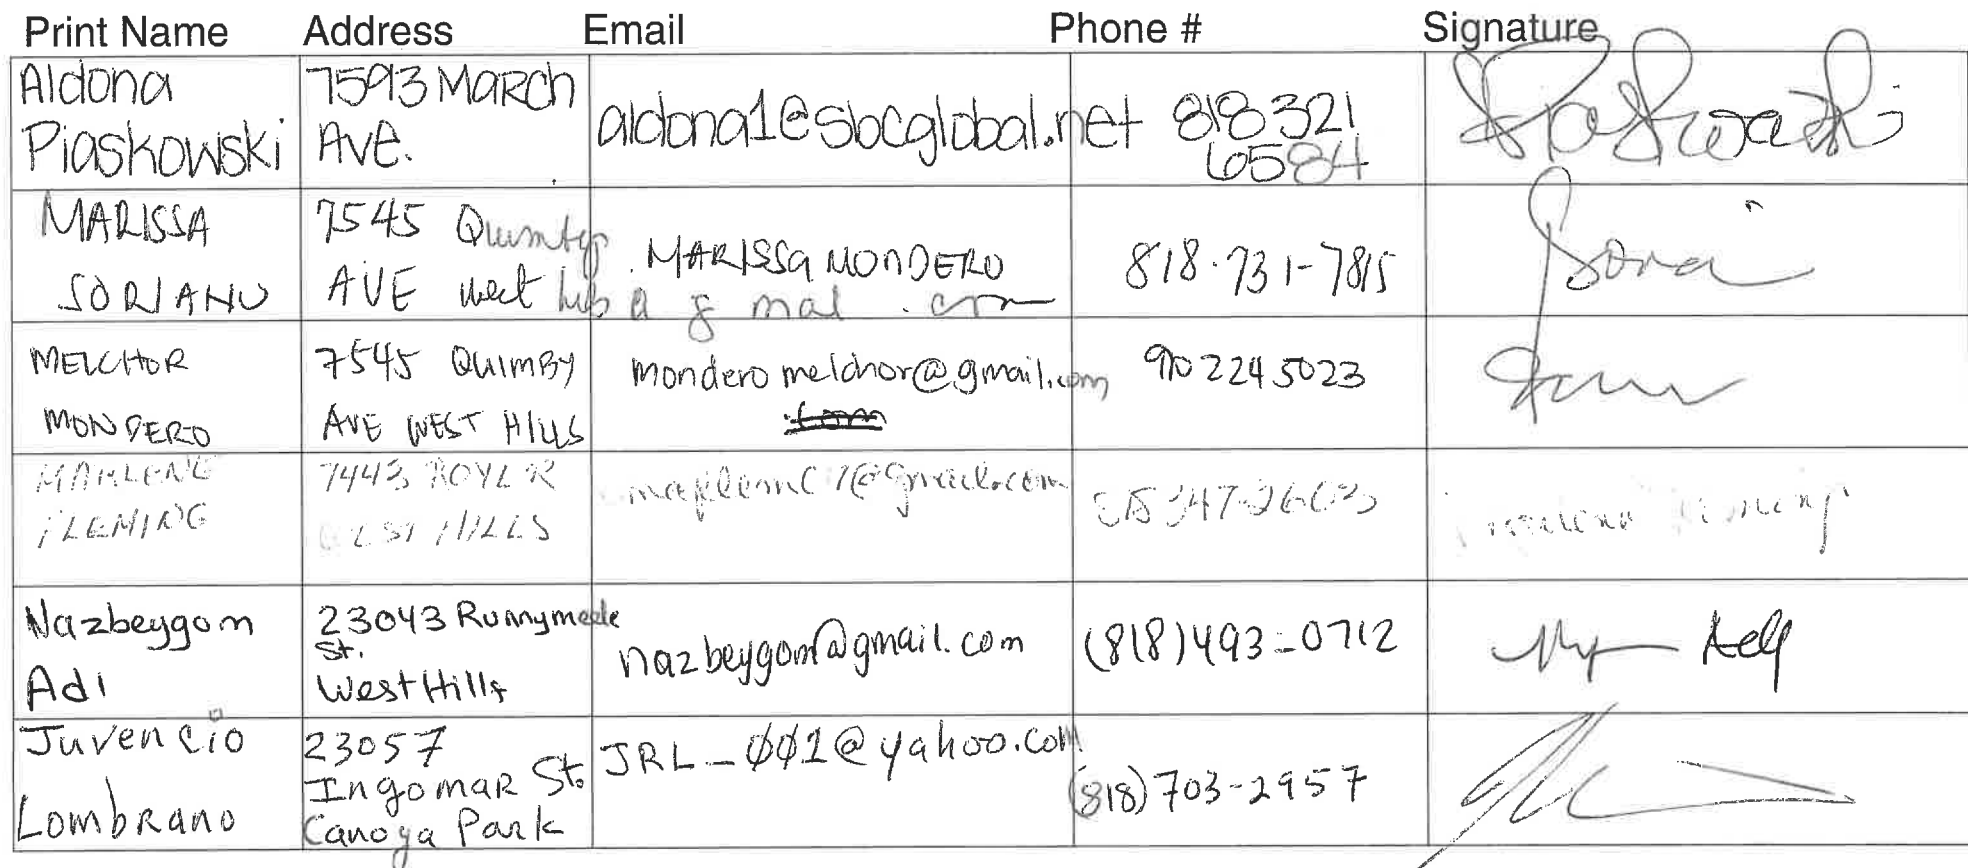 Print Name Address Email Phone # Signature
Aldona
Piaskowski
7593 March
Ave.
aldona1@sbcglobal.net
818 321
6584
MARISSA
SORIANO
7545 Quimby
AVE west hills
MARISSA MONDERO
@ gmail.com
818-731-7815
MELCHOR
MONDERO
7545 QUIMBY
AVE WEST HILLS
mondero melchor@gmail.com
.com
910 224 5023
MARLENE
FLEMING
7443 ROYER
WEST HILLS
Nazbeygom
Adi
23043 Runnymede
St.
West Hills
nazbeygom@gmail.com
(818)493-0712
Juvencio
Lombrano
23057
Ingomar St.
Canoga Park
JRL_001@yahoo.com
(818)703-2957